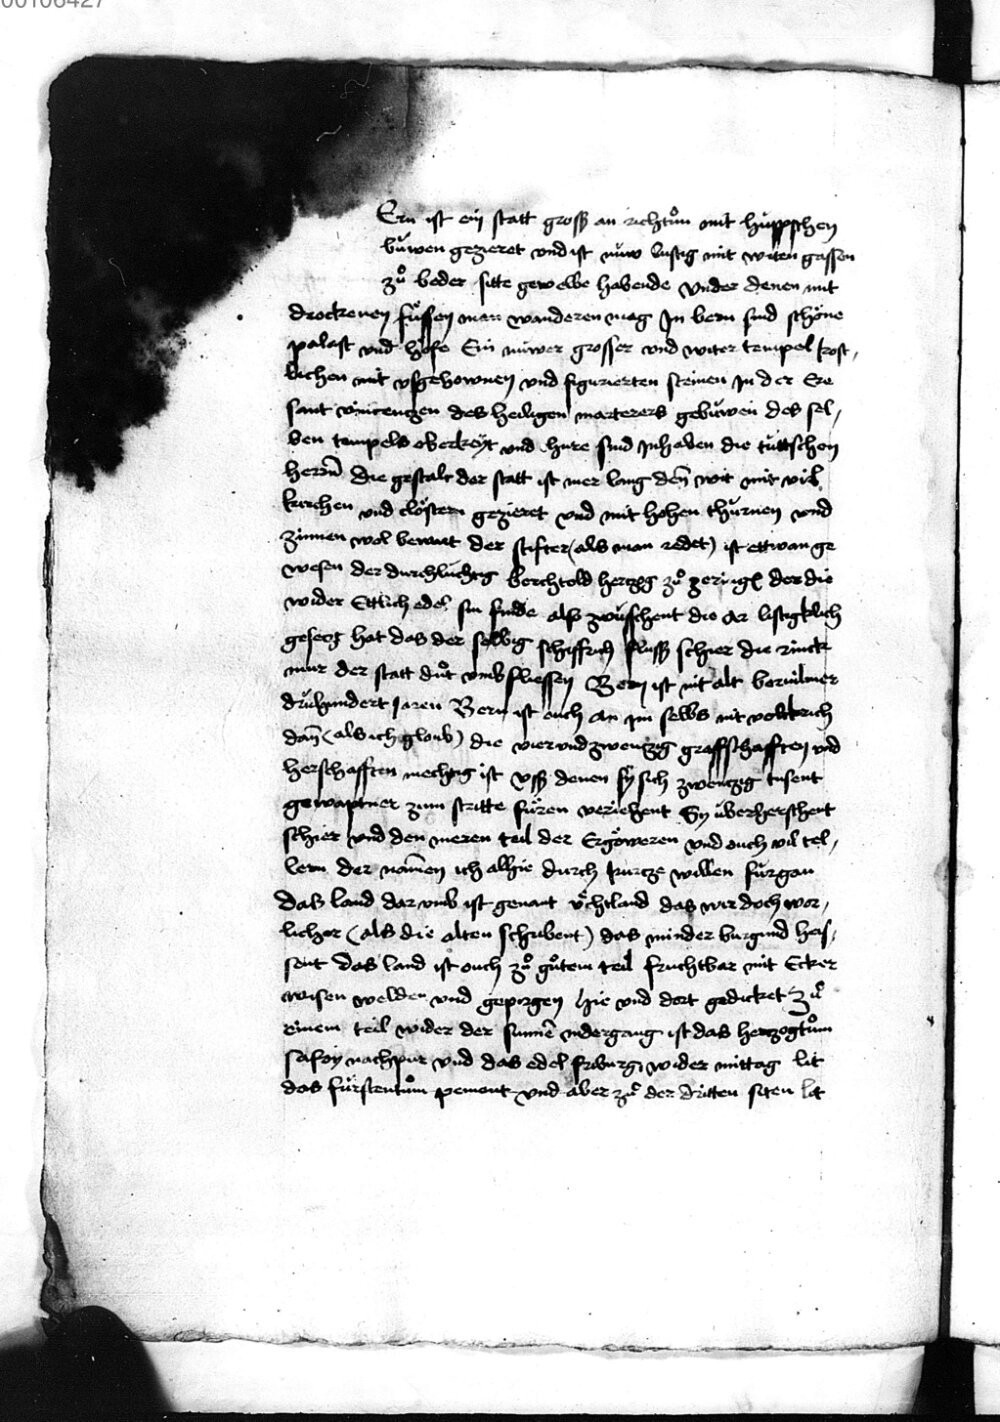 00106427
Ern ist ein statt groß an richtům mit hüppschen
büwen gezieret vnd ist nüw lustig mit witen gassen
zů beder sitte gewelbe habende vnder denen mit
drockenen füssen man wanderen mag In bern sind schöne
palast vnd höfe Ein nüwer grosser vnd witer tempel kost,
lichen mit vsgehownen vnd figurierten steinen In der Ere
sant vincenzen des heiligen marterers gebüwen des sel,
ben tempels oberkeyt vnd hute sind Inhaben die tüttschen
herrn̄ die gestalt der statt ist mer lang den̄ wit mit vil
kirchen vnd clöstern gezieret vnd mit hohen thürnen vnd
zinnen wol bewart der stifter (als man redet) ist ettwan ge
wesen der durchlüchtig berchtold hertzog zů zeringē der die
wider Ettlich edel sin finde also zwüschent die ar listigklich
gesetzt hat das der selbig schiffrich flusß schier die rinck
mur der statt důt vmbfliessen Bern ist nit alt
drühundert Jaren Bern ist ouch an im selbs nit volckrich
dan̄ (als ich gloub) die vier vnd zwentzig graffschafften vnd
herschafften mechtig ist vsß denen sy sich zwentzig tusent
gewaptner zum stritte füren veriehent Sy überherschent
schier vnd den meren teil der Ergöweren vnd ouch vil tel,
lern der nam̄en ich alhie durch kurtze willen fürgan
Das land dar vmb ist genant üchtland das wir doch wor,
licher (als die alten schribent) das minder burgund heis,
sent das land ist ouch zů gůtem teil fruchtbar mit Ecker
wisen welden vnd gepirgen hie vnd dort gedicket Zů
einem teil wider der sunnē ndergang ist das hertzogtům
safoy nachpur vnd das edel friburg, wider mittag lit
das fürstentům pemont vnd aber zů der dritten siten lit